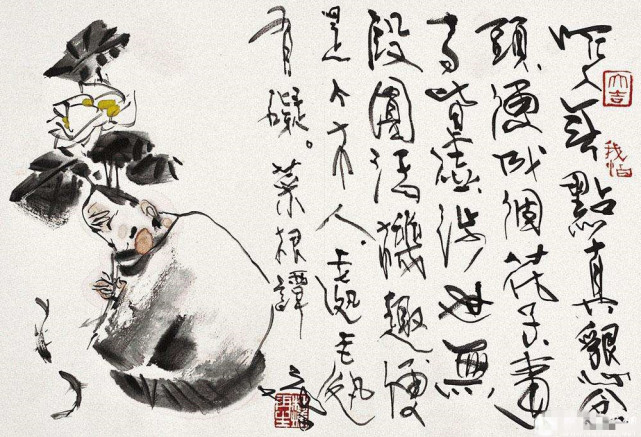 作人無點真懇念
頭便成個花子事
事皆虛涉世無
段圓活機趣便
是个木人。處處
有礙。菜根譚
大吉